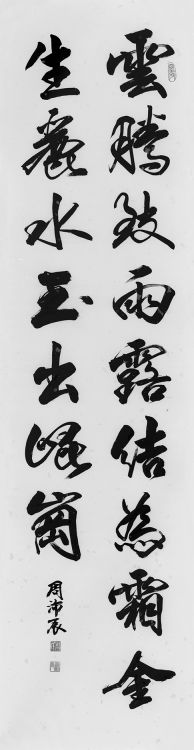 雲騰致雨露結為霜金
生麗水玉出崐崗
周沛辰